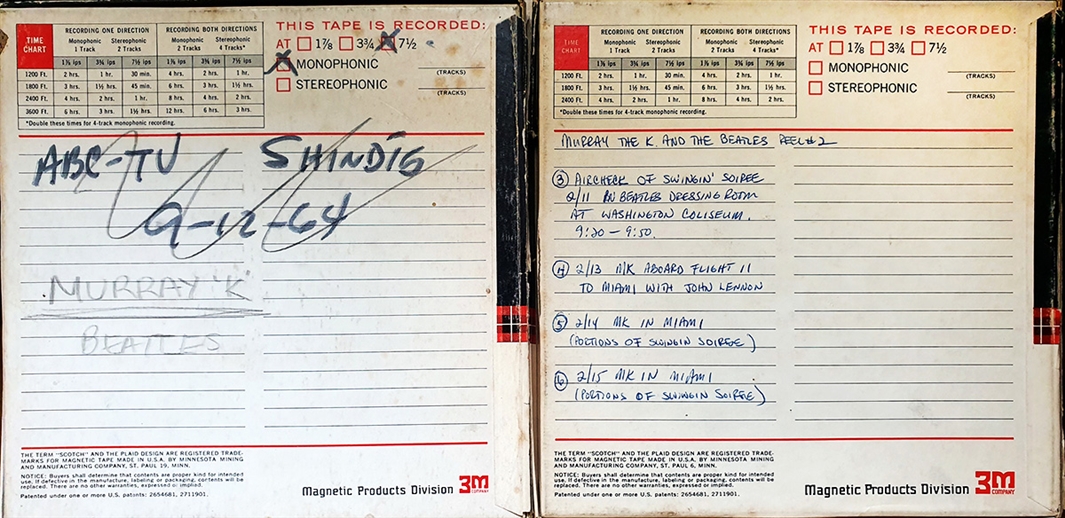 TIME CHART
RECORDING ONE DIRECTION
RECORDING BOTH DIRECTIONS
Monophonic 1 Track
Stereophonic 2 Tracks
Monophonic 2 Tracks
Stereophonic 4 Tracks*
1⅞ ips 3¾ ips 7½ ips 1⅞ ips 3¾ ips 7½ ips
1200 Ft. 2 hrs. 1 hr. 30 min. 4 hrs. 2 hrs. 1 hr.
1800 Ft. 3 hrs. 1½ hrs. 45 min. 6 hrs. 3 hrs. 1½ hrs.
2400 Ft. 4 hrs. 2 hrs. 1 hr. 8 hrs. 4 hrs. 2 hrs.
3600 Ft. 6 hrs. 3 hrs. 1½ hrs. 12 hrs. 6 hrs. 3 hrs.
*Double these times for 4-track monophonic recording.
THIS TAPE IS RECORDED:
AT 1⅞ 3¾ X 7½
X MONOPHONIC
(TRACKS)
STEREOPHONIC
(TRACKS)
ABC-TV SHINDIG
9-12-64
MURRAY 'K'
BEATLES
THE TERM "SCOTCH" AND THE PLAID DESIGN ARE REGISTERED TRADE-
MARKS FOR MAGNETIC TAPE MADE IN U.S.A. BY MINNESOTA MINING
AND MANUFACTURING COMPANY, ST. PAUL 19, MINN.
NOTICE: Buyers shall determine that contents are proper kind for intended
use. If defective in the manufacture, labeling or packaging, contents will be
replaced. There are no other warranties, expressed or implied.
Patented under one or more U.S. patents: 2654681, 2711901.
Magnetic Products Division 3M COMPANY
TIME CHART
RECORDING ONE DIRECTION
RECORDING BOTH DIRECTIONS
Monophonic 1 Track
Stereophonic 2 Tracks
Monophonic 2 Tracks
Stereophonic 4 Tracks*
1⅞ ips 3¾ ips 7½ ips 1⅞ ips 3¾ ips 7½ ips
1200 Ft. 2 hrs. 1 hr. 30 min. 4 hrs. 2 hrs. 1 hr.
1800 Ft. 3 hrs. 1½ hrs. 45 min. 6 hrs. 3 hrs. 1½ hrs.
2400 Ft. 4 hrs. 2 hrs. 1 hr. 8 hrs. 4 hrs. 2 hrs.
*Double these times for 4-track monophonic recording.
THIS TAPE IS RECORDED:
AT 1⅞ 3¾ 7½
MONOPHONIC
(TRACKS)
STEREOPHONIC
(TRACKS)
MURRAY THE K. AND THE BEATLES REEL #2
3 AIRCHECK OF SWINGIN' SOIREE
2/11 IN BEATLES DRESSING ROOM
AT WASHINGTON COLISEUM.
9:20 - 9:50.
4 2/13 M/K ABOARD FLIGHT 11
TO MIAMI WITH JOHN LENNON
5 2/14 MK IN MIAMI
(PORTIONS OF SWINGIN SOIREE)
6 2/15 MK IN MIAMI
(PORTIONS OF SWINGIN SOIREE)
THE TERM "SCOTCH" AND THE PLAID DESIGN ARE REGISTERED TRADE-
MARKS FOR MAGNETIC TAPE MADE IN U.S.A. BY MINNESOTA MINING
AND MANUFACTURING COMPANY, ST. PAUL 6, MINN.
NOTICE: Buyers shall determine that contents are proper kind for intended
use. If defective in the manufacture, labeling or packaging, contents will be
replaced. There are no other warranties, expressed or implied.
Patented under one or more U.S. patents: 2654681, 2711901.
Magnetic Products Division 3M COMPANY